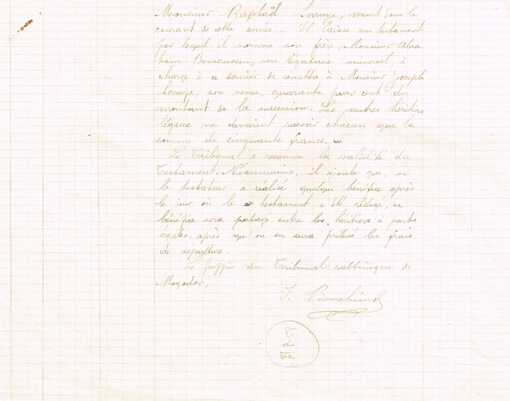 Monsieur Raphaël Serruya, meurt dans le
courant de cette année. Il laisse un testament
par lequel il nomme son frère, Monsieur Abra
ham Bensoussan, son légataire universel, à
charge à ce dernier de remettre à Monsieur Joseph
Serruya, son neveu, quarante pour cent du
montant de la succession. Les autres héritiers
légaux ne devaient recevoir chacun que la
somme de cinquante francs.
Le Tribunal a reconnu la validité du
testament. Néanmoins, il ajoute que, si
le testateur a réalisé quelque bénéfice après
le jour où le testament a été rédigé, ce
bénéfice sera partagé entre les héritiers à parts
égales après qu'on en aura prélevé les frais
de sépulture.
Le greffier du Tribunal rabbinique de
Mogador,
J. Benchimol
T.
du